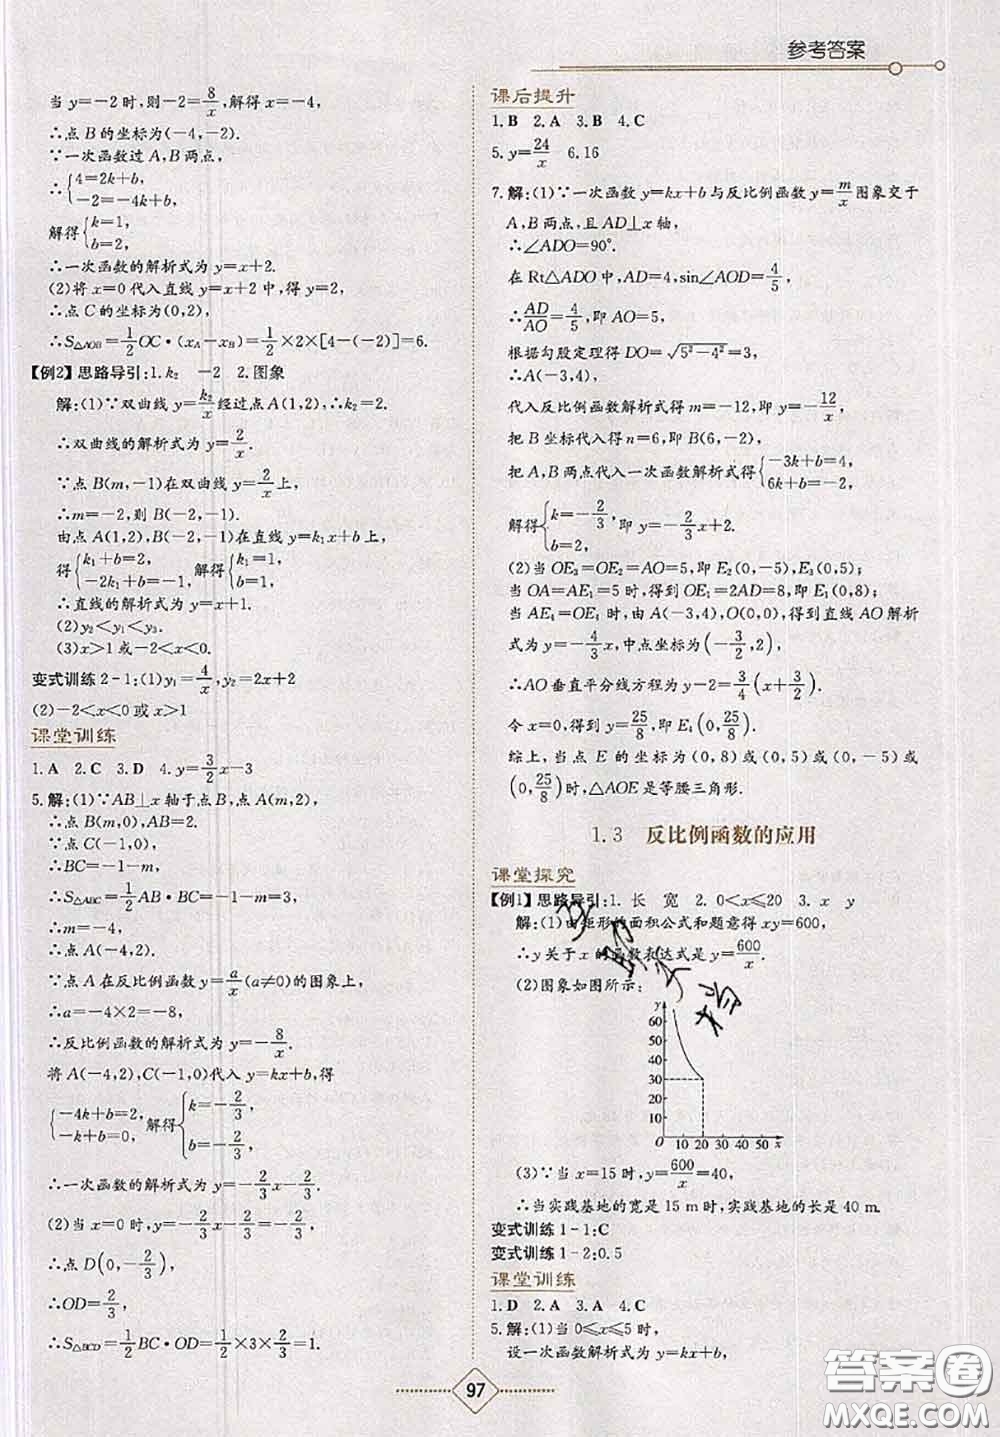 参考答案
当 y=-2 时,则-2=8/x,解得 x=-4,
∴点 B 的坐标为(-4,-2).
∵一次函数过 A,B 两点,
∴{4=2k+b,
-2=-4k+b,
解得{k=1,
b=2,
∴一次函数的解析式为 y=x+2.
(2)将 x=0 代入直线 y=x+2 中,得 y=2,
∴点 C 的坐标为(0,2),
∴S△AOB=1/2OC·(xA-xB)=1/2×2×[4-(-2)]=6.
【例2】思路导引:1.k₂ -2 2.图象
解:(1)∵双曲线 y=k₂/x经过点 A(1,2),∴k₂=2.
∴双曲线的解析式为 y=2/x.
∵点 B(m,-1)在双曲线 y=2/x上,
∴m=-2,则 B(-2,-1).
由点 A(1,2),B(-2,-1)在直线 y=k₁x+b 上,
得{k₁+b=2,
-2k₁+b=-1,解得{k₁=1,
b=1,
∴直线的解析式为 y=x+1.
(2)y₂<y₁<y₃.
(3)x>1 或-2<x<0.
变式训练 2-1:(1)y₁=4/x,y₂=2x+2
(2)-2<x<0 或 x>1
课堂训练
1.A 2.C 3.D 4.y=3/2x-3
5.解:(1)∵AB⊥x 轴于点 B,点 A(m,2),
∴点 B(m,0),AB=2.
∵点 C(-1,0),
∴BC=-1-m,
∴S△ABC=1/2AB·BC=-1-m=3,
∴m=-4,
∴点 A(-4,2).
∵点 A 在反比例函数 y=a/x(a≠0)的图象上,
∴a=-4×2=-8,
∴反比例函数的解析式为 y=-8/x.
将 A(-4,2),C(-1,0)代入 y=kx+b,得
{-4k+b=2,
-k+b=0,解得{k=-2/3,
b=-2/3,
∴一次函数的解析式为 y=-2/3x-2/3.
(2)当 x=0 时,y=-2/3x-2/3=-2/3,
∴点 D(0,-2/3),
∴OD=2/3,
∴S△BCD=1/2BC·OD=1/2×3×2/3=1.
课后提升
1.B 2.A 3.B 4.C
5.y=24/x 6.16
7.解:(1)∵一次函数 y=kx+b 与反比例函数 y=m/x图象交于
A,B 两点,且 AD⊥x 轴,
∴∠ADO=90°.
在 Rt△ADO 中,AD=4,sin∠AOD=4/5,
∴AD/AO=4/5,即 AO=5,
根据勾股定理得 DO=√(5²-4²)=3,
∴A(-3,4),
代入反比例函数解析式得 m=-12,即 y=-12/x,
把 B 坐标代入得 n=6,即 B(6,-2),
把 A,B 两点代入一次函数解析式得{-3k+b=4,
6k+b=-2,
解得{k=-2/3,
b=2,即 y=-2/3x+2.
(2)当 OE₃=OE₂=AO=5,即 E₂(0,-5),E₃(0,5);
当 OA=AE₁=5 时,得到 OE₁=2AD=8,即 E₁(0,8);
当 AE₄=OE₄ 时,由 A(-3,4),O(0,0),得到直线 AO 解析
式为 y=-4/3x,中点坐标为(-3/2,2),
∴AO 垂直平分线方程为 y-2=3/4(x+3/2).
令 x=0,得到 y=25/8,即 E₄(0,25/8).
综上,当点 E 的坐标为(0,8)或(0,5)或(0,-5)或
(0,25/8)时,△AOE 是等腰三角形.
1.3 反比例函数的应用
课堂探究
【例1】思路导引:1.长 宽 2.0<x≤20 3.x y
解:(1)由矩形的面积公式和题意得 xy=600,
∴y 关于 x 的函数表达式是 y=600/x.
(2)图象如图所示:
y
60
50
40
30
20
10
O 10 20 30 40 50 x
(3)∵当 x=15 时,y=600/x=40,
∴当实践基地的宽是 15 m时,实践基地的长是 40 m.
变式训练 1-1:C
变式训练 1-2:0.5
课堂训练
1.D 2.A 3.A 4.C
5.解:(1)当 0≤x≤5 时,
设一次函数解析式为 y=kx+b,
97
答案圈
MXQE.COM